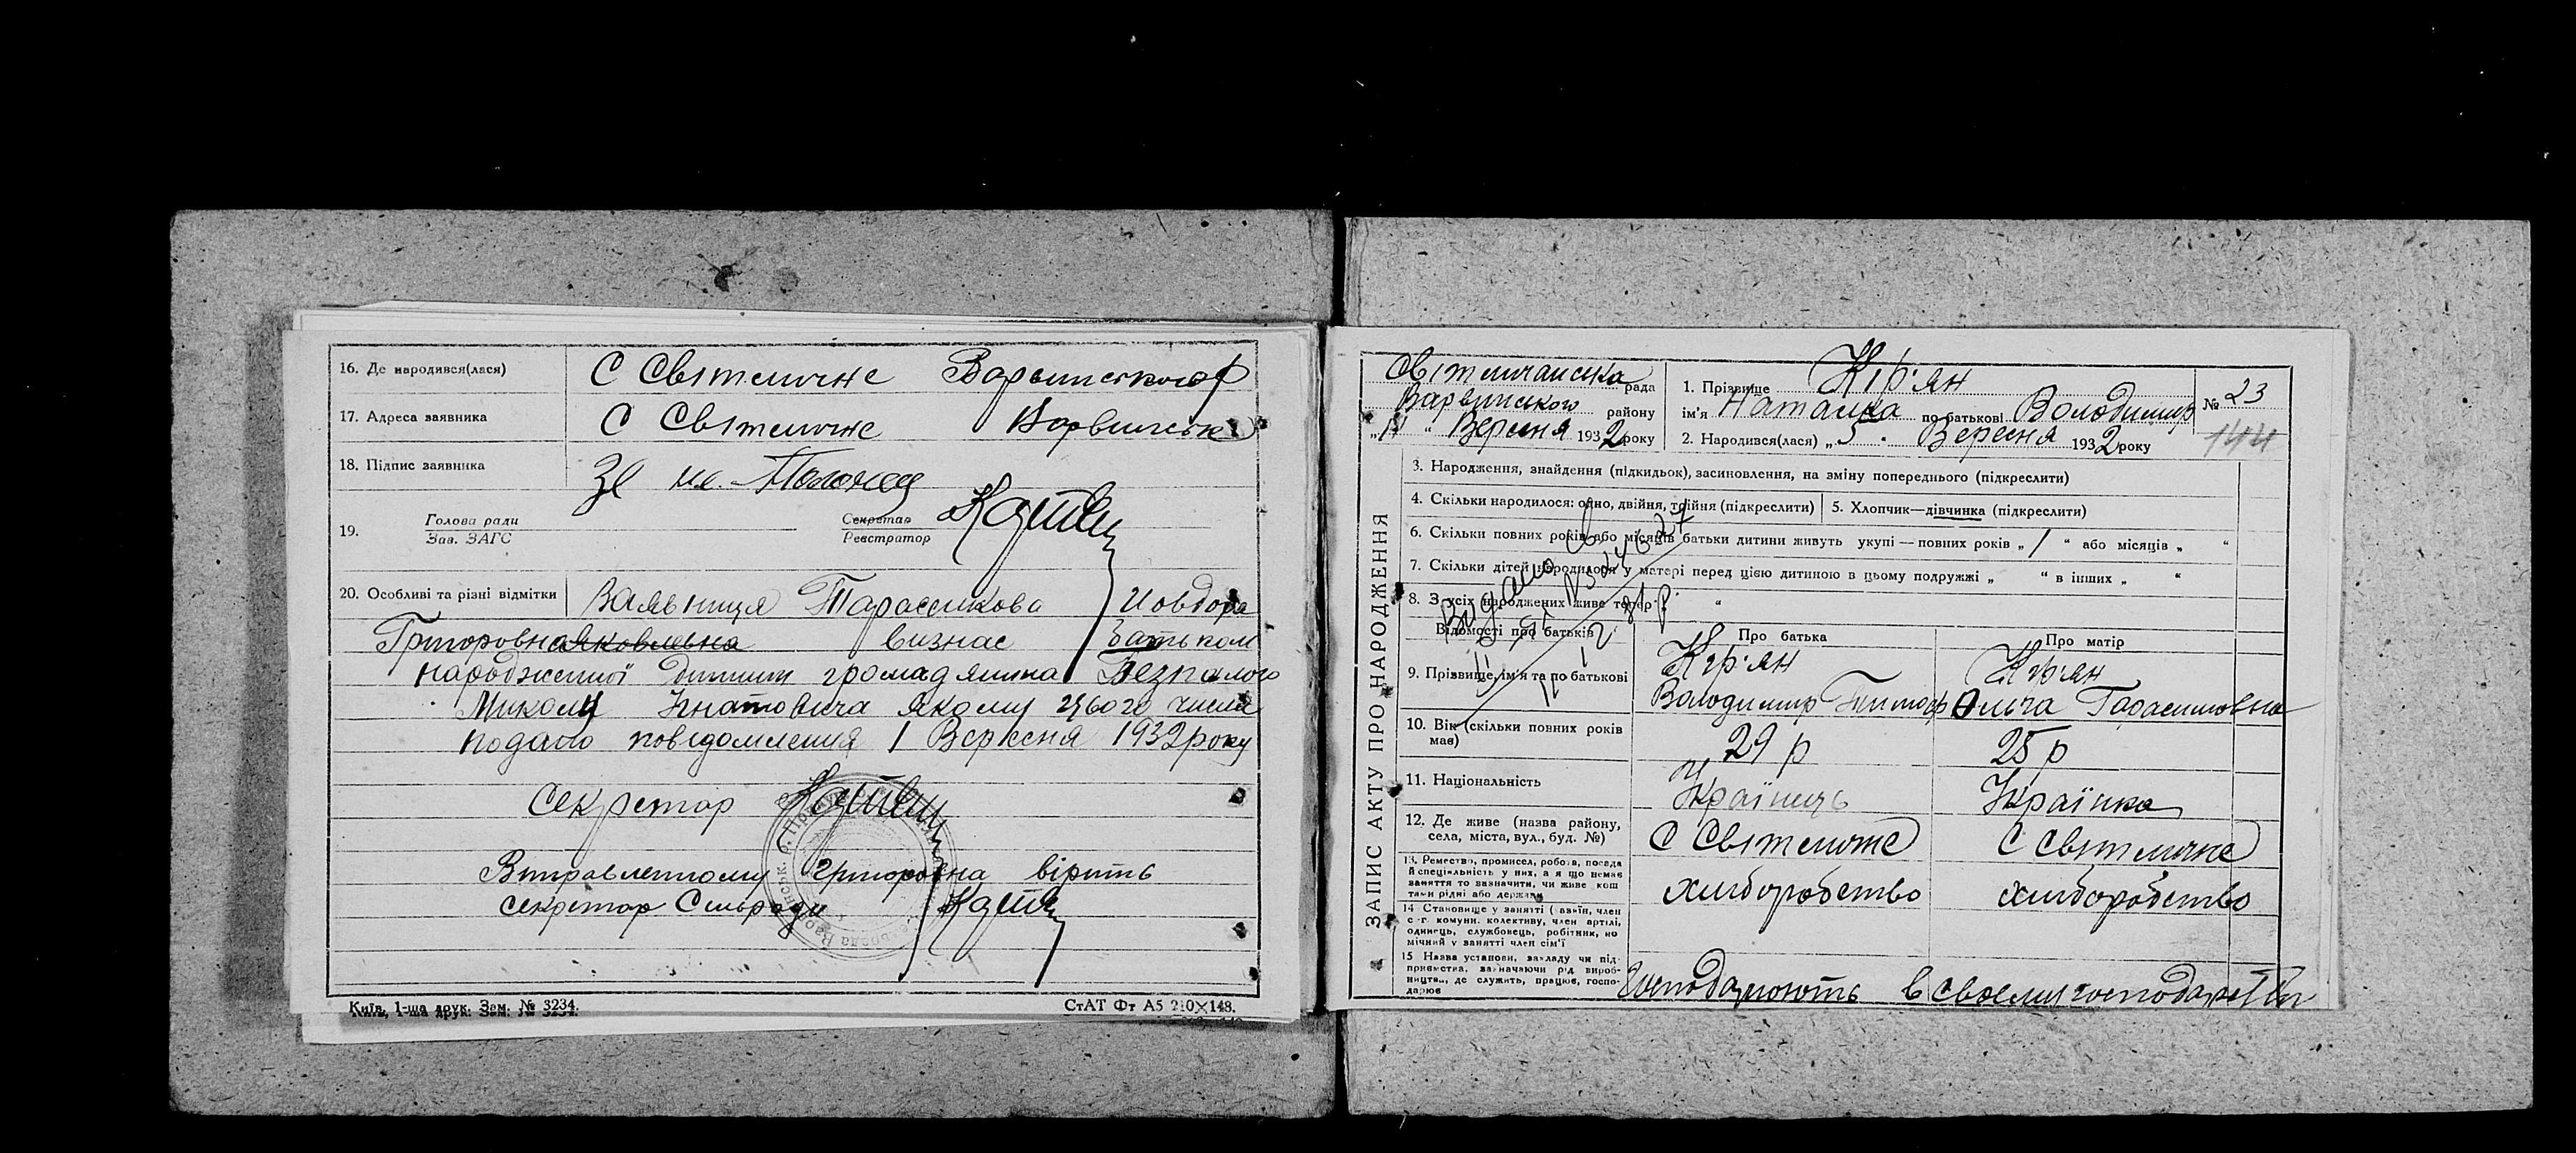 16. Де народився(лася) С Світличне Варвинського р
17. Адреса заявника С Світличне Варвинськ
18. Підпис заявника За не
19. Голова ради Секретар
Зав. ЗАГС Реєстратор
20. Особливі та різні відмітки Заявниця Тарасенкова
Григоровна Яковлевна визнає батьком
народженої дитини громадянина Безпалого
Миколу Гнатовича якому числа
подано повідомлення 1 Вересня 1932 року
Секретар
Виправленному Григоровна вірить
секретар Сільради
Київ, 1-ша друк. Зам. № 3234.
СтАТ Фт А5 210×148.
ЗАПИС АКТУ ПРО НАРОДЖЕННЯ
Світличанська рада
Варвинського району
„11“ Вересня 1932 року
1. Прізвище Кір'ян
ім'я Наталка по батькові Володимир
№ 23
144
2. Народився(лася) „5. Вересня 1932 року
3. Народження, знайдення (підкидьок), засиновлення, на зміну попереднього (підкреслити)
4. Скільки народилося: одно, двійня, трійня (підкреслити) 5. Хлопчик—дівчинка (підкреслити)
6. Скільки повних років або місяців батьки дитини живуть укупі — повних років „ / “ або місяців „ “
7. Скільки дітей народилося у матері перед цією дитиною в цьому подружжі „ “ в інших „ “
8. З усіх народжених живе тепер „ “
Видано
Відомості про батьків Про батька Про матір
9. Прізвище, ім'я та по батькові Кір'ян Кір'ян
Володимир Тимоф Ольга Гарасимовна
10. Вік (скільки повних років має) 29 р 25 р
11. Національність Українць Українка
12. Де живе (назва району, села, міста, вул., буд. №) С Світличне С Світличне
13. Ремество, промисел, робота, посада й спеціяльність у них, а я що немає заняття то зазначити, чи живе кош тами рідні або держави хліборобство хліборобство
14 Становище у занятті (хазяїн, член с-г. комуни, колективу, член артілі, одинець, службовець, робітник, по мічний у занятті член сім'ї
15 Назва установи, закладу чи під-приємства, зазначаючи рід вироб-ництва, де служить, працює, госпо-дарює Господарюють в своєму господарстві